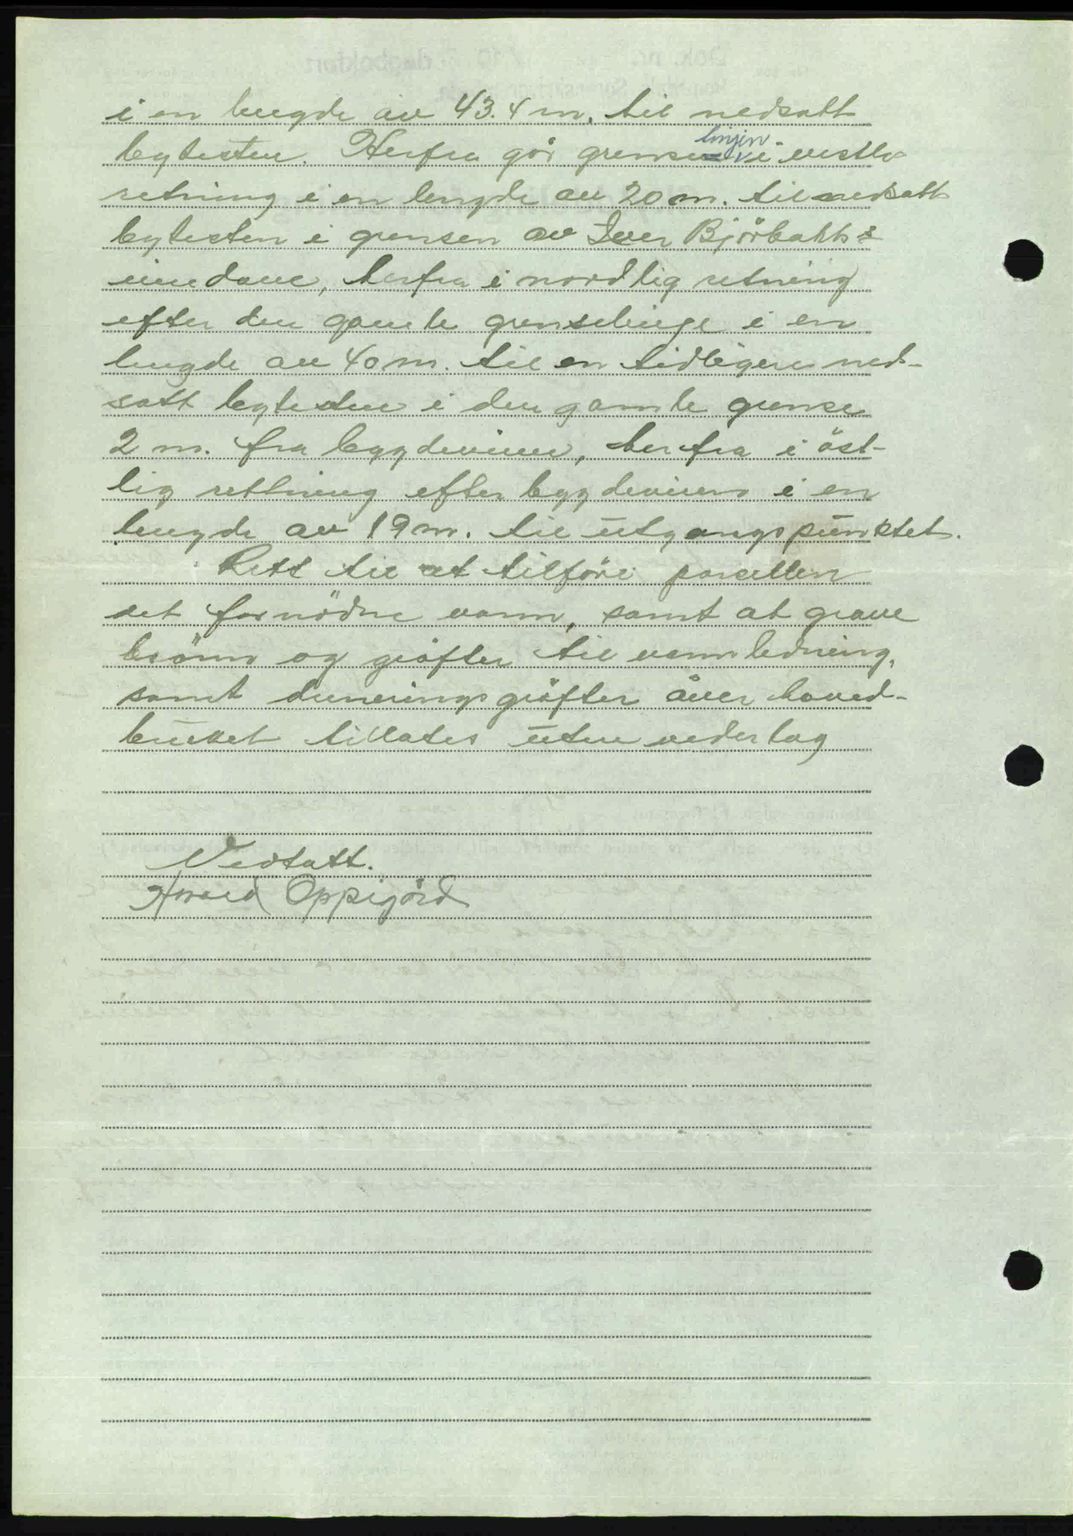 i en lengde av 43.4 m. til nedsatt
bytesten. Herfra går grense linjen i vestlig
retning i en lengde av 20 m. til nedsatt
bytesten i grensen av Iver Björbakks
eiendom, herfra i nordlig retning
efter den gamle grenselinje i en
lengde av 40 m. til en tidligere ned-
satt bytesten i den gamle grense
2 m. fra byggdeveien, herfra i öst-
lig rettning efter byggdeveien i en
lengde av 19 m. til utgangspunktet.
Rett til at tilföre parsellen
det fornödne vann, samt at grave
brönn og gröfter til vannledning,
samt dreneringsgröfter över hoved-
bruket tillates uten vederlag
Vedtatt.
Oppigård